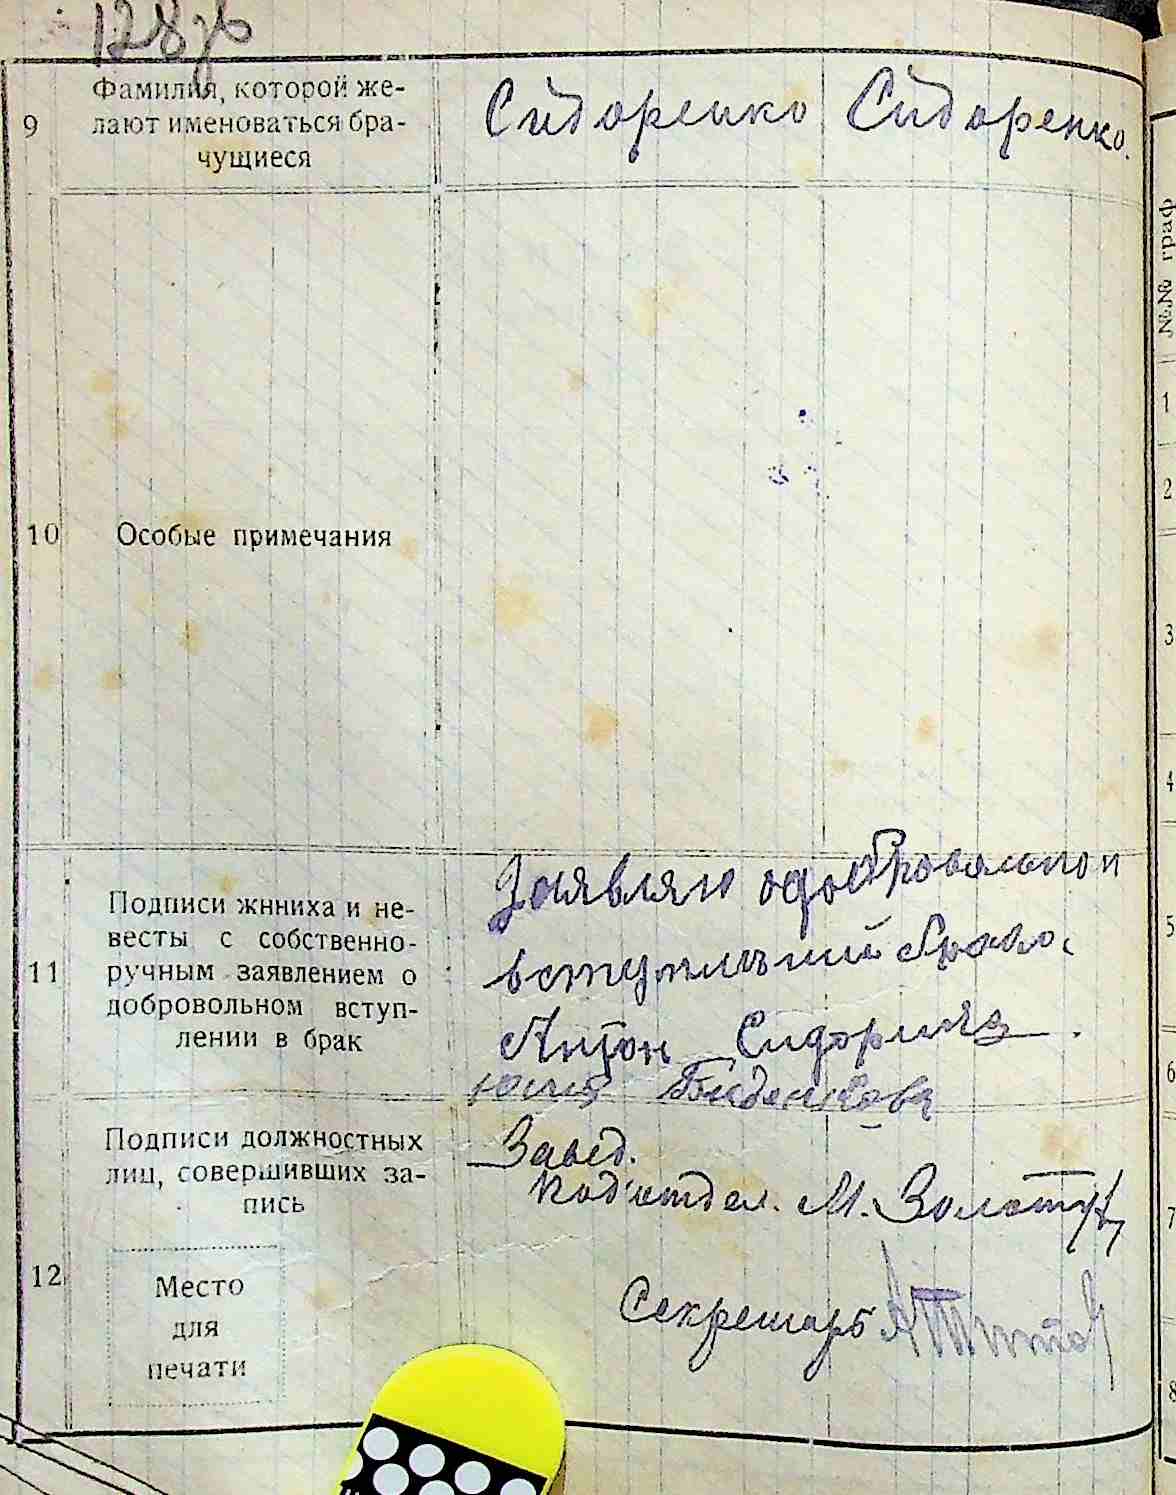 128
9
Фамилия, которой же-
лают именоваться бра-
чущиеся
Сидоренко Сидоренко.
10
Особые примечания
11
Подписи жнниха и не-
весты с собственно-
ручным заявлением о
добровольном вступ-
лении в брак
Заявляю
Антон
12
Подписи должностных
лиц, совершивших за-
пись
Завед.
под'отдел. М. Золоту
Секретарь
Место
для
печати
№№ граф
1
2
3
4
5
6
7
8